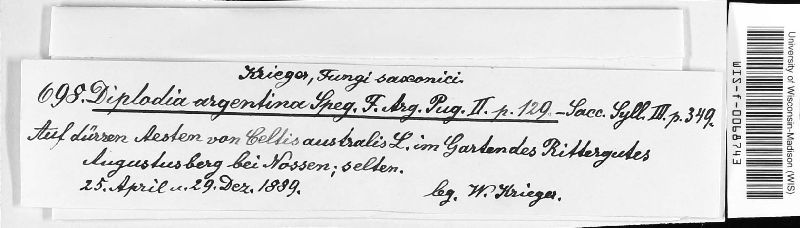 Krieger, Fungi saxonici.
698. Diplodia argentina Speg. F. Arg. Pug. II. p. 129. – Sacc. Syll. III. p. 349.
Auf dürren Aesten von Celtis australis L. im Garten des Rittergutes
Augustusberg bei Nossen; selten.
25. April u. 29. Dez. 1889.
leg. W. Krieger.
WIS-f-0068743
University of Wisconsin-Madison (WIS)